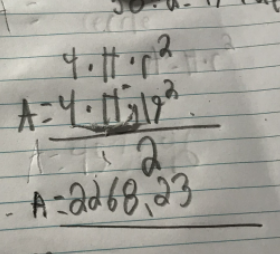 4·π·r²
A=4·π·19²
2
A=2268,23